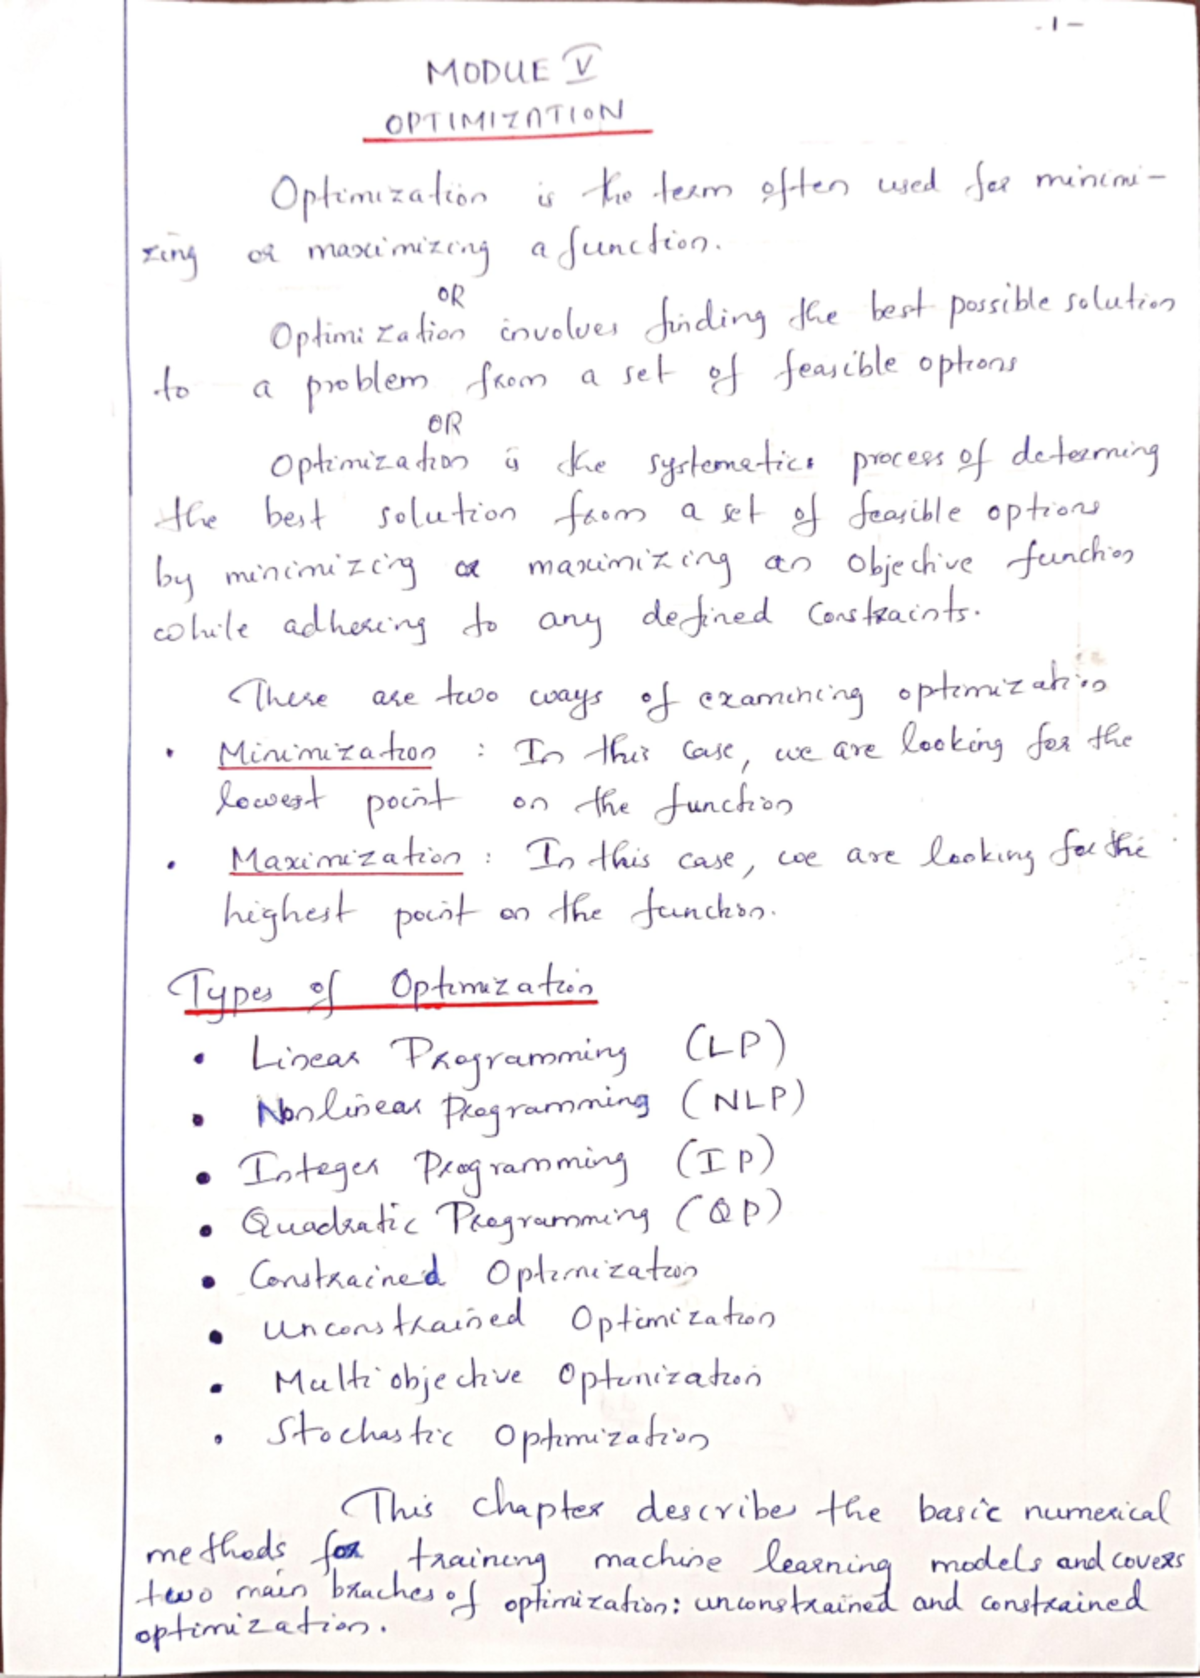 - 1 -
MODUE V
OPTIMIZATION
Optimization is the term often used for minimi-
zing or maximizing a function.
OR
Optimization involves finding the best possible solution
to a problem from a set of feasible options
OR
Optimization is the systematics process of determing
the best solution from a set of feasible options
by minimizing or maximizing an objective function
while adhering to any defined constraints.
There are two ways of examining optimization
• Minimization : In this case, we are looking for the
lowest point on the function
• Maximization : In this case, we are looking for the
highest point on the function.
Types of Optimization
• Linear Programming (LP)
• Nonlinear Programming (NLP)
• Integer Programming (IP)
• Quadratic Programming (QP)
• Constrained Optimization
• Unconstrained Optimization
• Multiobjective Optimization
• Stochastic Optimization
This chapter describes the basic numerical
methods for training machine learning models and covers
two main braches of optimization: unconstrained and constrained
optimization.